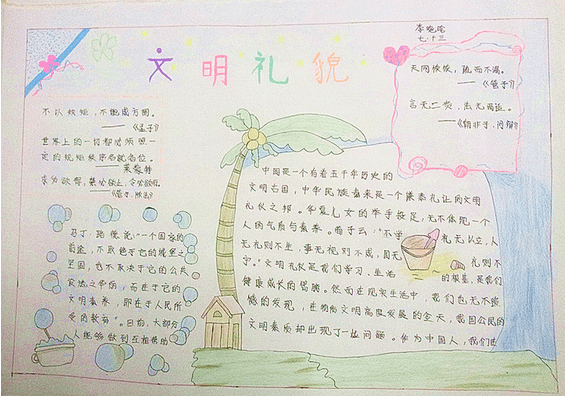 文明礼貌
李晚晓
七.十三
天网恢恢，疏而不漏。
——《老子》
言无二贵，法无两适。
——《韩非子.问辩》
不以规矩，不能成方圆。
——《孟子》
世界上的一切都必须按照一
定的规矩秩序各就各位。
——莱蒙特
求必欲得，禁必欲止，令必欲行。
——《管子.法法》
马丁.路德说：“一个国家的
前途，不取决于它的城堡之
坚固，也不取决于它的公共
设施之华丽，而在于它的
文明素养，即在于人民所
受的教育”。日前，大部分
人能够做到互相帮助
中国是一个有着五千年历史的
文明古国，中华民族素来是一个谦恭礼让的文明
礼仪之邦。华夏儿女的举手投足，无不体现一个
人的气质与素养。荀子云：“不学礼无以立，人
无礼则不生，事无礼则不成，国无礼则不
宁。”文明礼仪是我们学习、生活的根基，是我们
健康成长的臂膀。然而在现实生活中，我们也无不遗
憾的发现，在物质文明高度发展的今天，我国公民的
文明素质却出现了一些问题。作为中国人，我们进